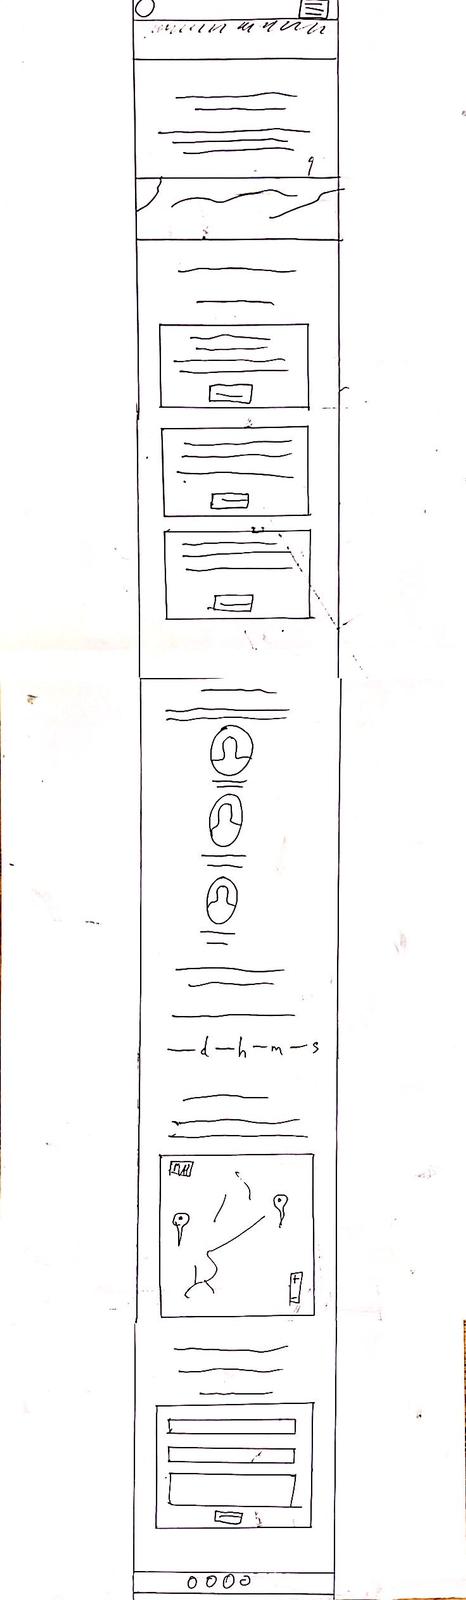 — d — h — m — s
+
-